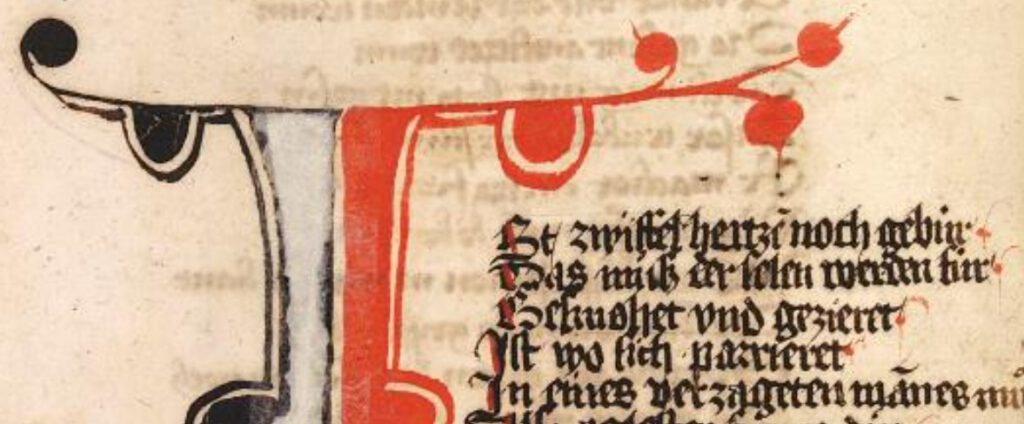 ISt zwiffel hertzē noch gebur
Das muß der selen werden sur
Gesmohet vnd gezieret
Ist wo sich parrieret
In eines verzageten mānes